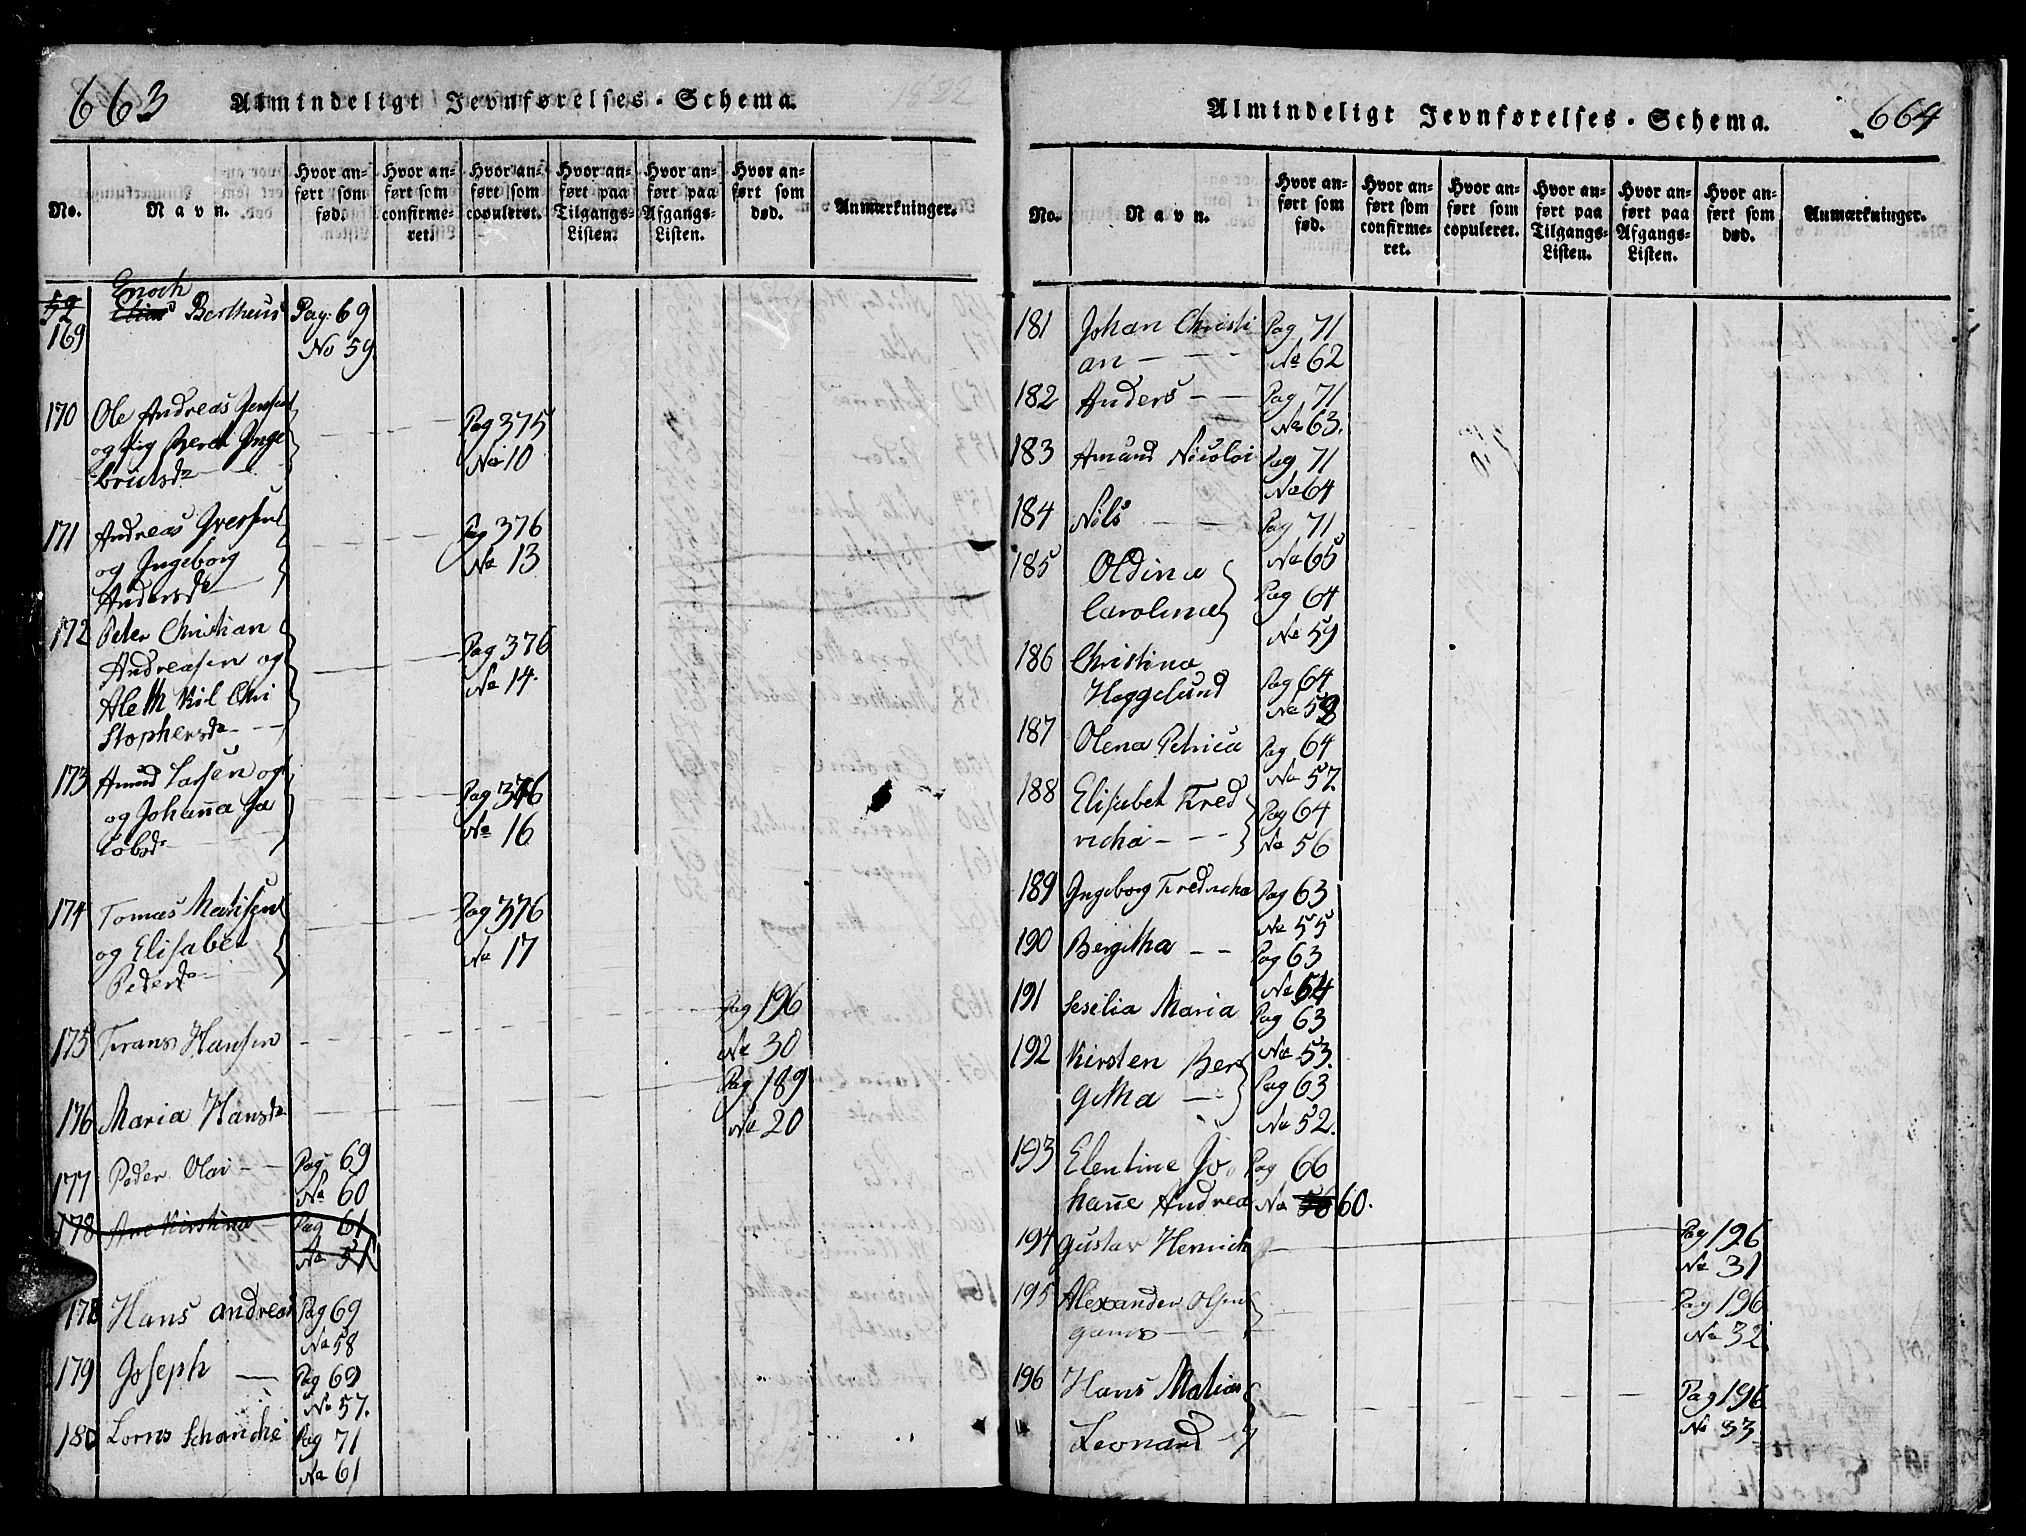 663 Almindeligt Jevnførelses-Schema.
No. Navn. Hvor anført som fød. Hvor anført som confirmeret. Hvor anført som copuleret. Hvor anført paa Tilgangs-Listen. Hvor anført paa Afgangs-Listen. Hvor anført som død. Anmærkninger.
Enoch
59 Elias Bertheus Pag. 69
169 No 59
170 Ole Andreas Jensen Pag 375
og Pig Beret Inge No 10
brictsdr
171 Andreas Iversen Pag 376
og Ingeborg No 13
Andersdr
172 Peter Christian
Andreasen og Pag 376
Aleth Kil Chri No 14.
stophersdr
173 Amund Larsen og Pag 376
og Johanna Ja No 16
cobsdr
174 Tomas Matisen Pag 376
og Elisabet No 17
Pedersdr
175 Frans Hansen Pag 196
No 30
176 Maria Hansdr Pag 189
No 20
177 Peder Olai Pag 69
No 60
178 Ane Kirstina Pag 61
No 51
178 Hans Andreas Pag 69
No 58
179 Joseph Pag 69
No 57.
180 Lorns Schanche Pag 71
No 61
Almindeligt Jevnførelses-Schema. 664
No. Navn. Hvor anført som fød. Hvor anført som confirmeret. Hvor anført som copuleret. Hvor anført paa Tilgangs-Listen. Hvor anført paa Afgangs-Listen. Hvor anført som død. Anmærkninger.
181 Johan Christi Pag 71
an No 62
182 Anders Pag 71
No 63.
183 Amund Nicolai Pag 71
No 64
184 Nils Pag 71
No 65
185 Oldina Pag 64
Carolina No 59
186 Christina Pag 64
Heggelund No 58
187 Olena Petrica Pag 64
No 57
188 Elisabet Fred Pag 64
richa No 56
189 Ingeborg Fredricha Pag 63
No 55
190 Bergitha Pag 63
No 54
191 Seselia Maria Pag 63
No 53.
192 Kirsten Ber Pag 63
githa No 52.
193 Elentine Jo Pag 66
hanne Andrea No 56 60.
194 Gustav Henrich Pag 196
No 31
195 Alexander Olsen Pag 196
No 32
196 Hans Matias Pag 196
Leonard No 33